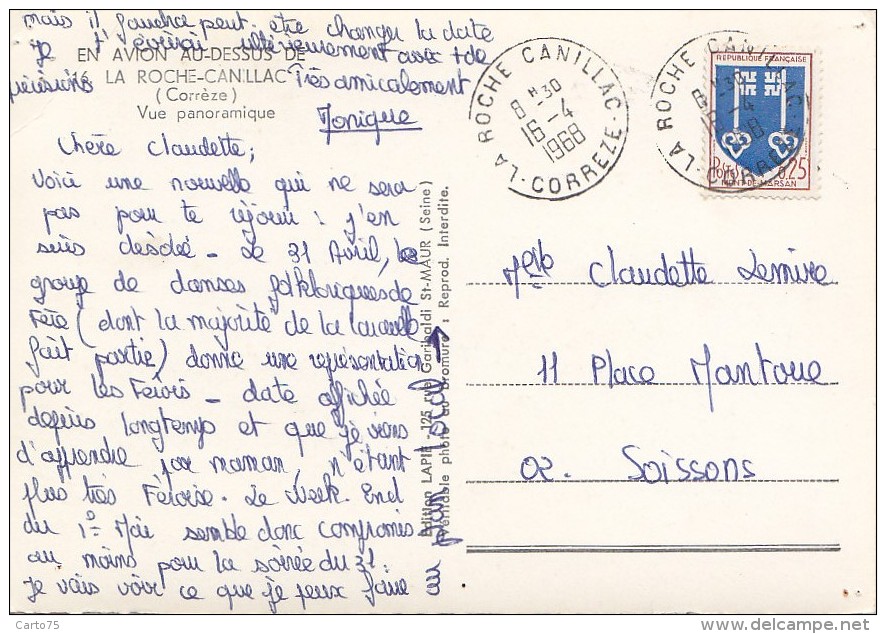 mais il faudra peut-être changer la date
Je t'écrirai ultérieurement avec + de
précisions
Très amicalement
Monique
EN AVION AU-DESSUS DE
LA ROCHE-CANILLAC
(Corrèze)
Vue panoramique
Chère Claudette,
Voici une nouvelle qui ne sera
pas pour te réjouir : j'en
suis désolée - Le 31 Avril, le
groupe de danses folkloriques de
Fère (dont la majorité de la
fait partie) donne une représentation
pour les Férois - date affichée
depuis longtemps et que je viens
d'apprendre par maman, n'étant
plus très Féroise. Le Week-End
du 1º Mai semble donc compromis
au moins pour la soirée du 31.
Je vais voir ce que je peux faire
au plan local
Edition LAPIE - 125 rue Garibaldi St-MAUR (Seine)
Véritable photo au bromure : Reprod. Interdite.
LA ROCHE CANILLAC
8 H 30
16-4
1968
CORREZE
LA ROCHE CANILLAC
CORREZE
REPUBLIQUE FRANÇAISE
POSTES 0,25
MONT-DE-MARSAN
Melle Claudette Lemire
11 Place Mantoue
02. Soissons
Carto75
delcampe.net